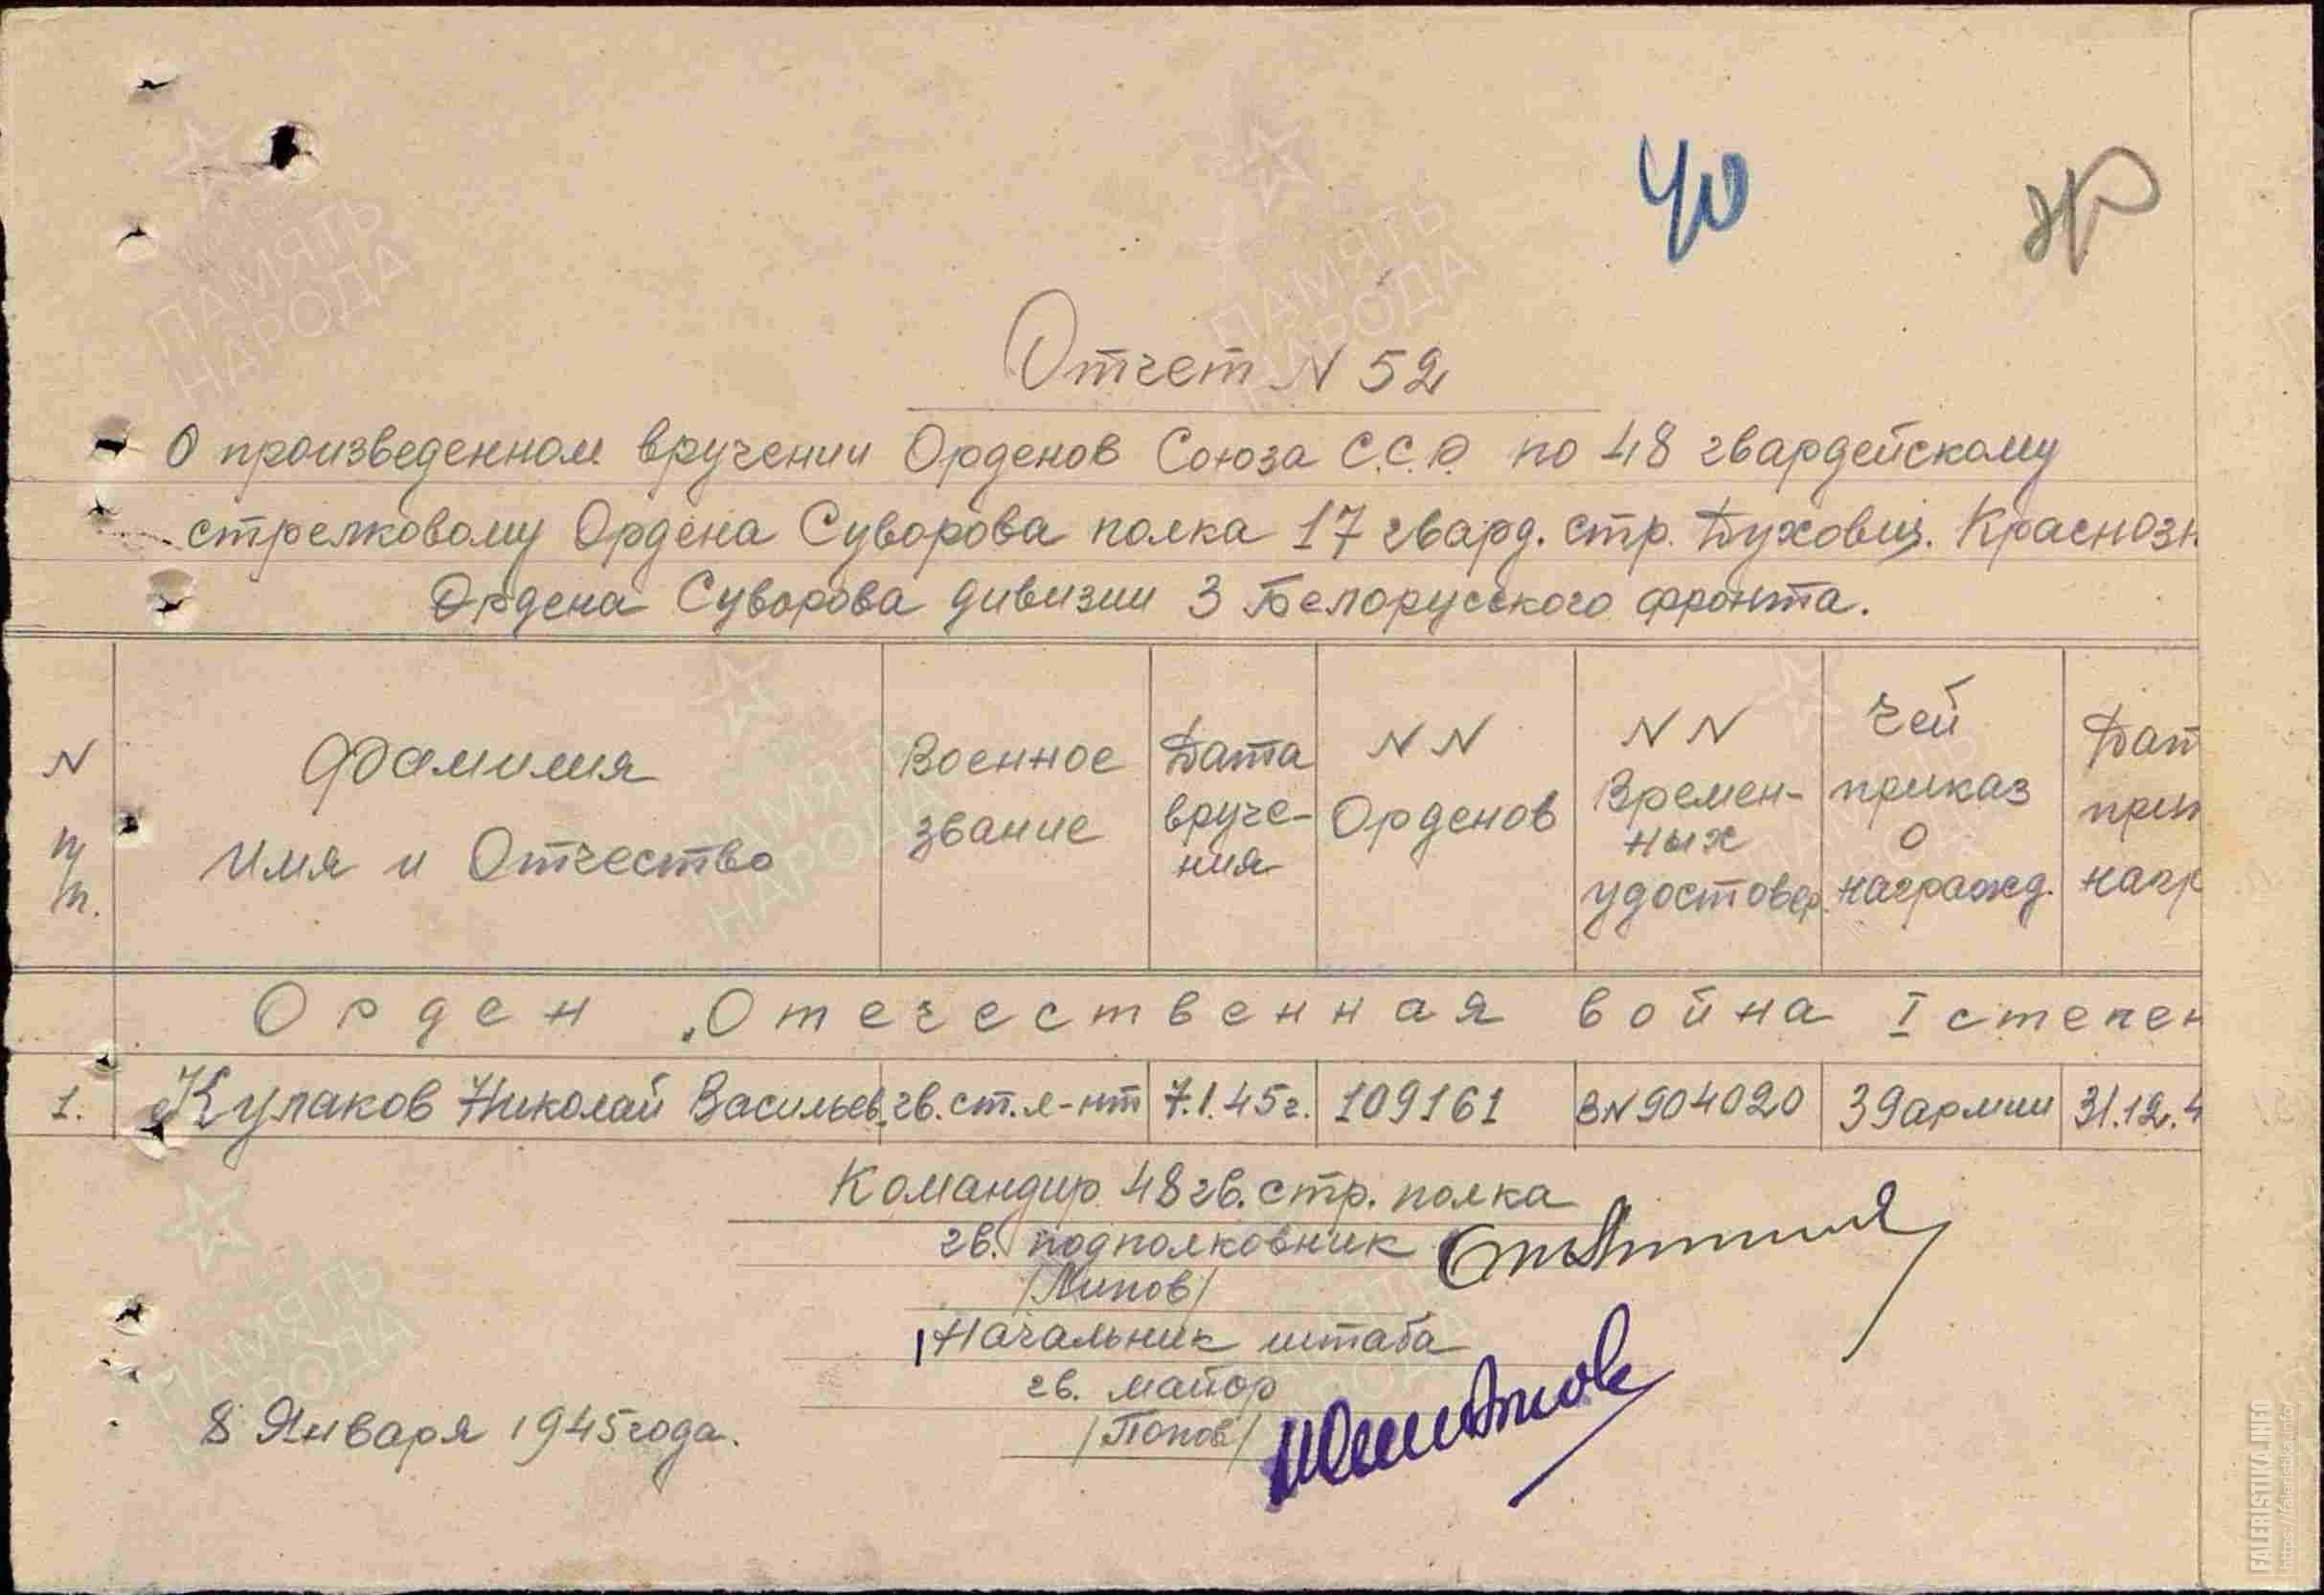 40
Отчет N 52
О произведенном вручении Орденов Союза С.С.Р. по 48 гвардейскому
стрелковому Ордена Суворова полка 17 гвард. стр. Духовщ. Краснозн
Ордена Суворова дивизии 3 Белорусского фронта.
N п/п. Фамилия Имя и Отчество Военное звание Дата вручения NN Орденов NN Времен-ных удостовер. Чей приказ о награжд. Дат при нагр
Орден „Отечественная война I степен
1. Кулаков Николай Васильев. гв. ст. л-нт 7.1.45г. 109161 ВN904020 39 армии 31.12.4
Командир 48 гв. стр. полка
гв. подполковник
/Липов/
Начальник штаба
гв. майор
/Попов/
8 Января 1945 года.
ПАМЯТЬ НАРОДА
FALERISTIKA.INFO
https://faleristika.info/